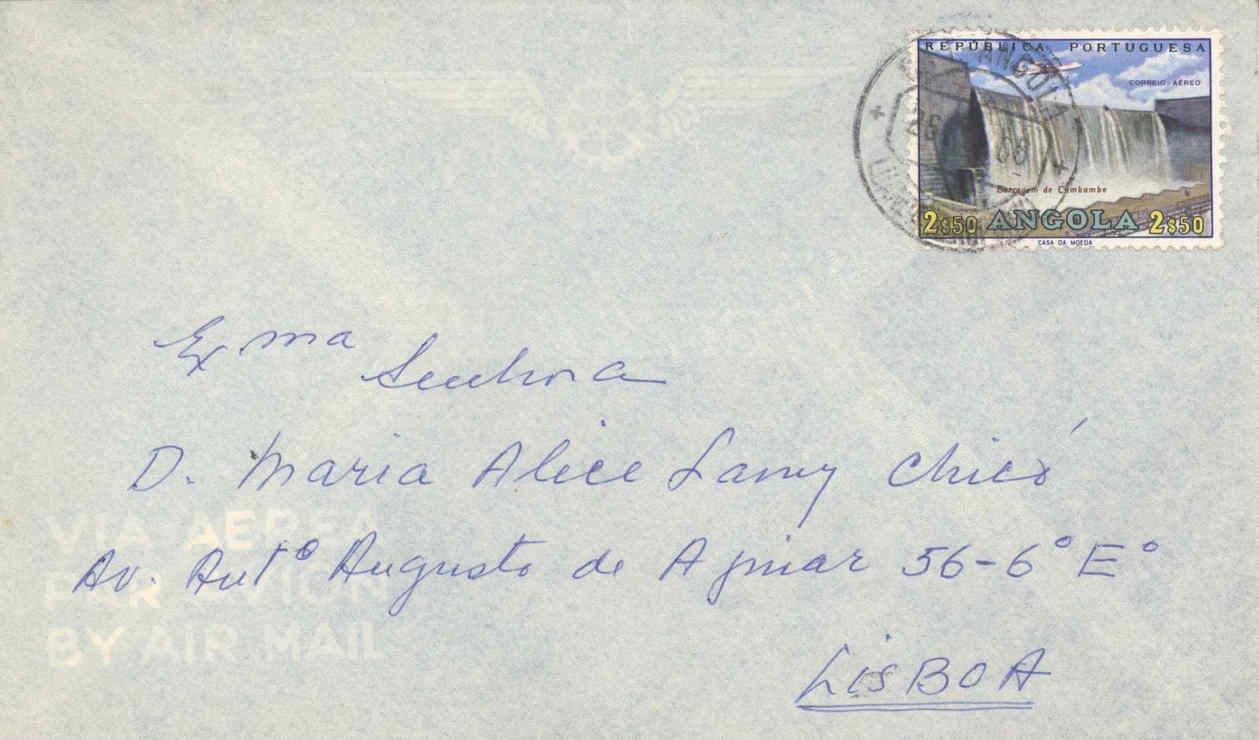 REPÚBLICA PORTUGUESA
CORREIO AÉREO
Barragem de Cambambe
2$50 ANGOLA 2$50
CASA DA MOEDA
Exma
Senhora
D. Maria Alice Lamy Chicó
Av. Antº Augusto de Aguiar 56-6º Eº
LISBOA
VIA AEREA
PAR AVION
BY AIR MAIL